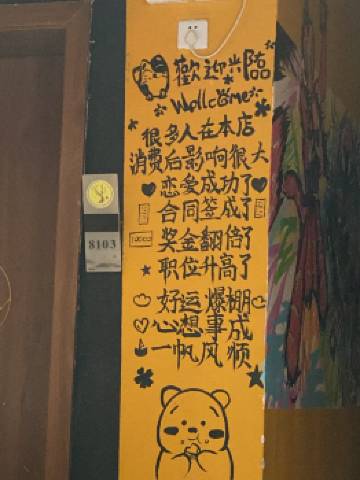 歡迎光臨
Wellcome
很多人在本店
消费后影响很大
恋爱成功了
合同签成了
奖金翻倍了
职位升高了
好运爆棚
心想事成
一帆风顺
8103